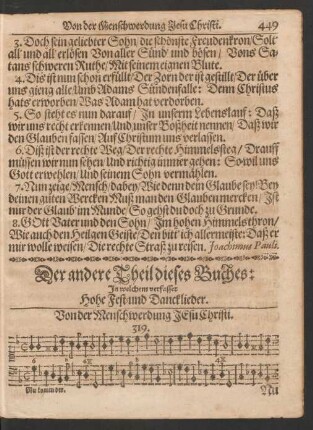 Von der Menschwerdung Jesu Christi. 449
3. Doch sein geliebter Sohn die schönste Freudenkron/ Solt
all und all erlösen Von aller Sünd und bösen/ Vons Sa-
tans schweren Ruthe/ Mit seinem eignen Blute.
4. Dis ist nun schon erfüllt/ Der Zorn der ist gestillt/ Der über
uns gieng alle/ Umb Adams Sündenfalle: Denn Christus
hats erworben/ Was Adam hat verdorben.
5. So steht es nun darauf/ In unserm Lebenslauf: Daß
wir uns recht erkennen/ Und unser Boßheit nennen/ Daß wir
den Glauben fassen/ Auf Christum uns verlassen.
6. Diß ist der rechte Weg/ Der rechte Himmelssteg/ Drauff
müssen wir nun sehen/ Und richtig immer gehen: So will uns
Gott erwehlen/ Und seinem Sohn vermählen.
7. Nun zeige Mensch/ dabey/ Wie denn dein Glaube sey/ Bey
deinen guten Wercken Muß man den Glauben mercken/ Ist
nur der Glaub im Munde/ So gehst du doch zu Grunde.
8. GOtt Vater und den Sohn/ Im hohen Himmelsthron/
Wie auch den Heilgen Geiste/ Den bitt ich allermeiste: Daß er
mir wolle weisen/ Die rechte Straß zu reisen. Joachimus Pauli.
Der andere Theil dieses Buches:
In welchem verfasset
Hohe Fest und Dancklieder.
Von der Menschwerdung JEsu Christi.
319.
Nu komm der.
Nu